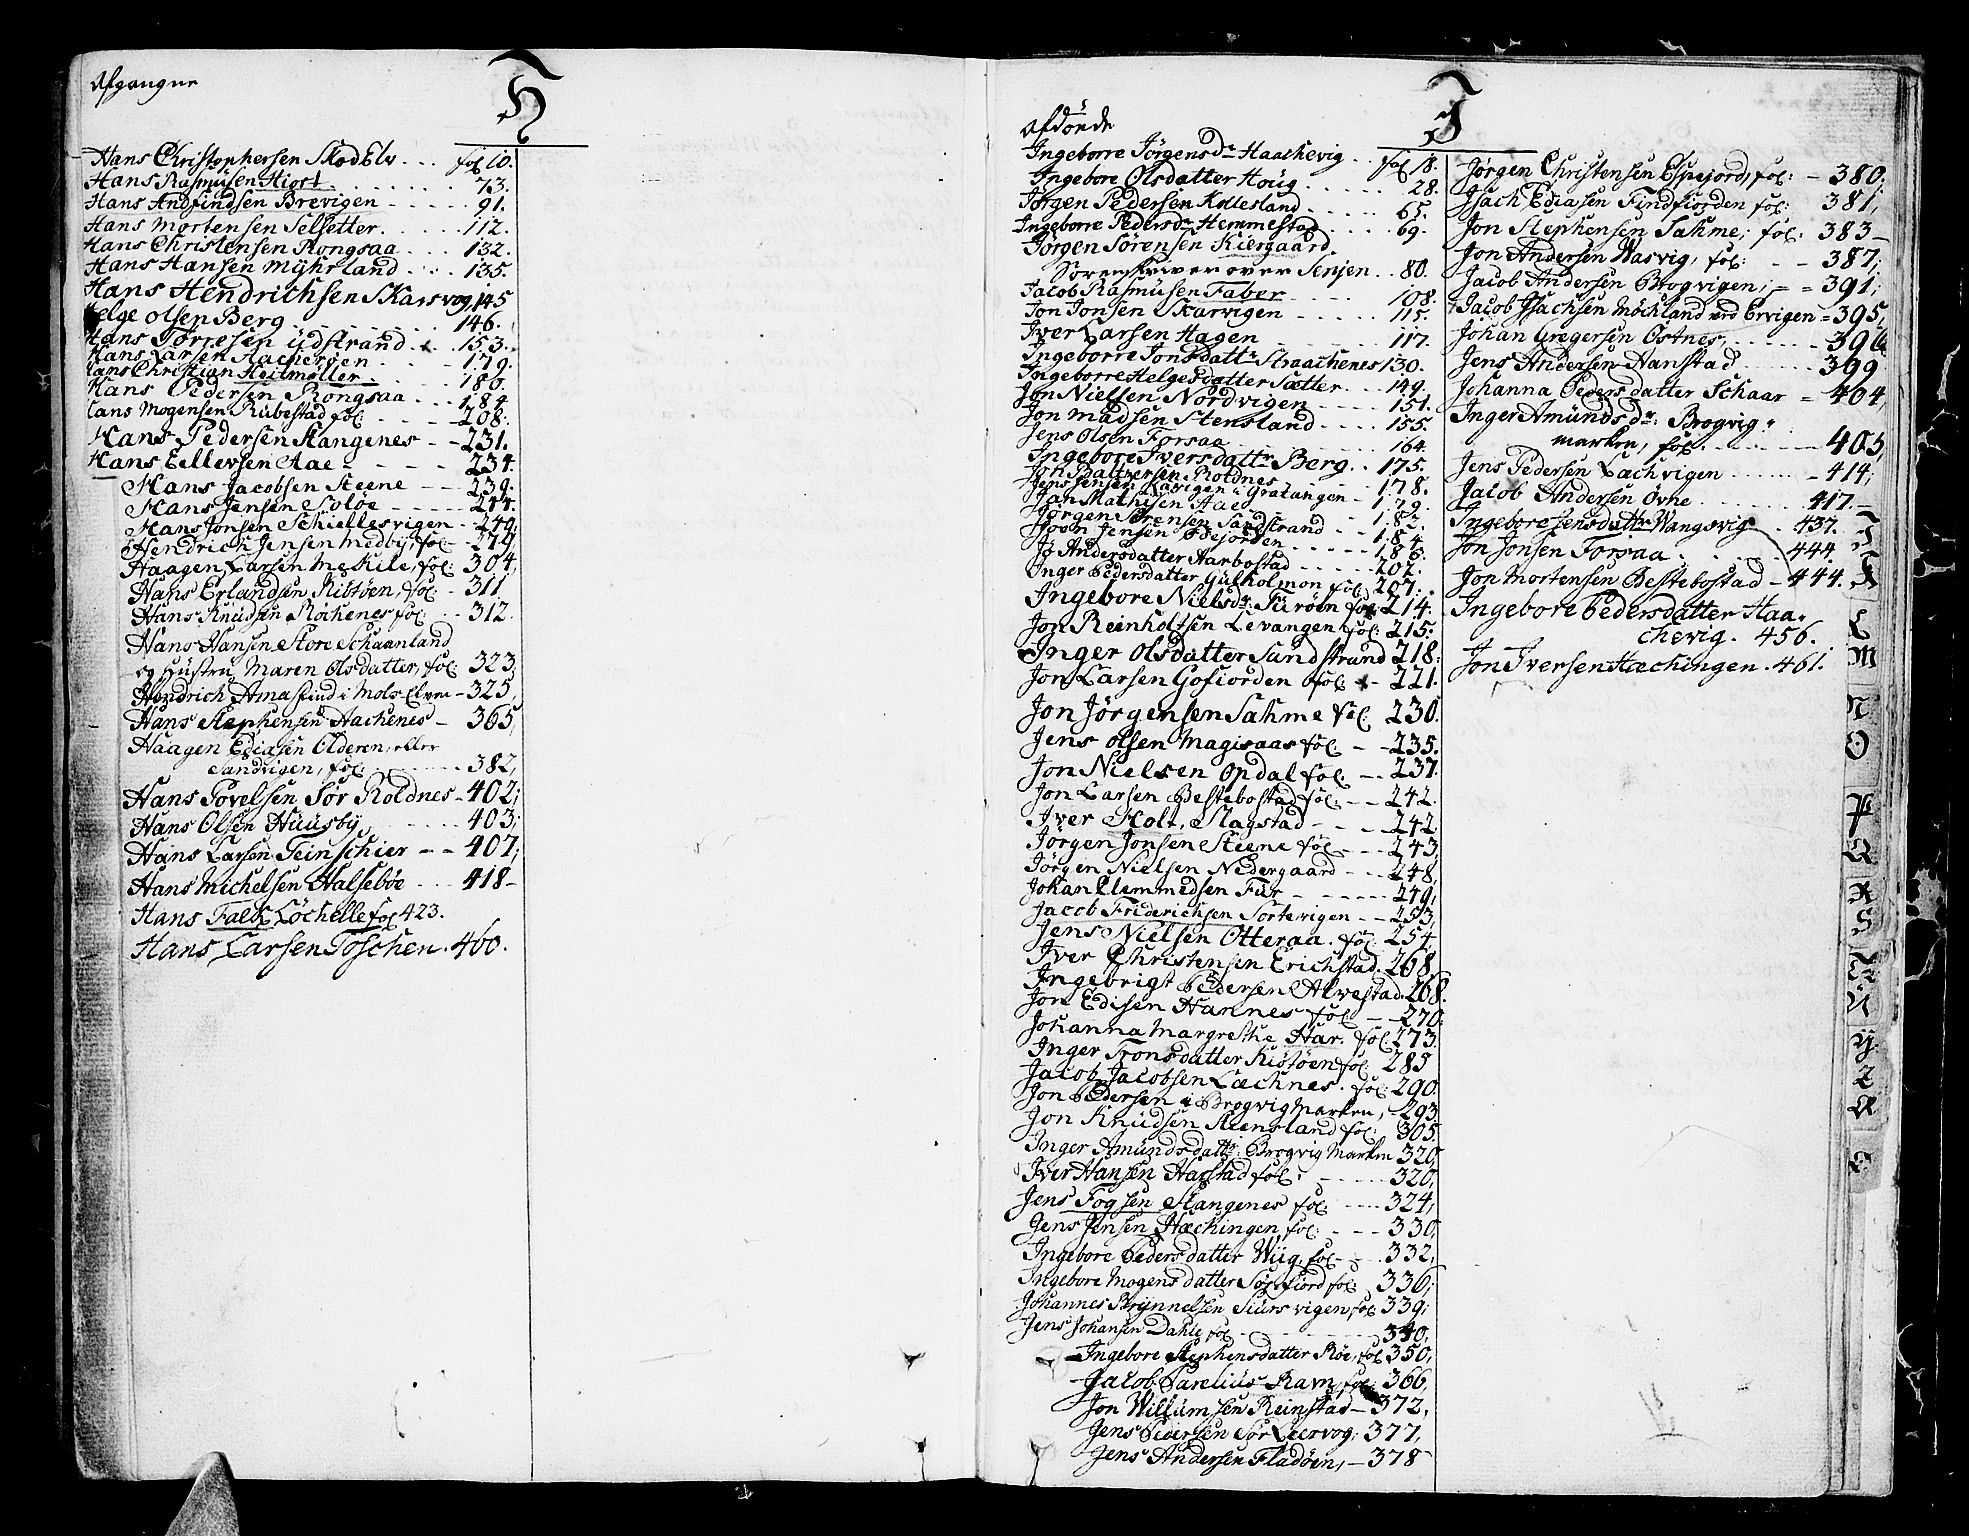 Afgangne
H
Hans Christophersen SkodElv . . . fol 10.
Hans Rasmusen Hiort . . . . . . . 73.
Hans Andfindsen Brevigen - - - - - 91.
Hans Mortensen Selsetter . . . . . 112.
Hans Christensen Rongsaa . . . . 132.
Hans Hansen Myhrland . . . . 135.
Hans Hendrichsen Skarsvog, 145
Helge Olsen Berg . . . . . . . . 146.
Hans Torresen Ydstrand . . . . 153.
Hans Larsen Aacherøen - - - - 179.
Hans Christian Heitmøller . . . . 180.
Hans Pedersen Rongsaa . . . 184
Hans Mogensen Rubestad fol - - - - 208.
Hans Pedersen Stangenes - - 231.
Hans Ellevsen Aae - - - - - 234.
Hans Jacobsen Steene - - - 239.
Hans Jensen Soløe - - - - - 244.
Hans Jonsen Schiellesvigen - - 249,
Hendrich Jensen Medby, fol - 274
Haagen Larsen Mekile, fol: 304,
Hans Erlandsen Kibtøen, fol - 311
Hans Knudsen Rochenes fol: - - 312.
Hans Hansen Store Schaanland
og Hustru Maren Olsdatter, fol: 323,
Hendrich Amasind i Mols Elven - 325,
Hans Stephensen Aachenes - 365,
Haagen Ediasen Olderen, eller
Sandvigen, fol: - - - - - - 382,
Hans Povelsen Sør Roldnes - 402;
Hans Olsen Huusby - - - - - - 403;
Hans Larsen Teinschier - - 407;
Hans Michelsen Halsebøe - - - 418 -
Hans Falck Løchelle fol 423.
Hans Larsen Foschen . 460.
I
Afdøde
Ingeborre Jørgensdr Haachevig . . fol 18.
Ingebore Olsdatter Houg . . . . . 28.
Jørgen Pedersen Kollesland . . . . . 65.
Ingeborre Pedersdr Hemmestad . . . . 69.
Jørgen Sørensen Kiergaard
Sorenskriver over Senjen . . 80.
Jacob Rasmusen Faber . . . . . 108.
Jon Jonsen Skarvigen . . . . . 115.
Iver Larsen Hagen - - - - - - - 117.
Ingeborre Jonsdattr Straachenes 130.
Ingeborre Helgesdatter Sætter . . . 149.
Jon Nielsen Nordvigen - - - - - 151.
Jon Madsen Stensland - - - - - 155.
Jens Olsen Forsaa - - - - - - - - 164
Ingebore Iversdattr Berg . . . 175.
Jon Baltzersen Roldnes - - - - -
Jens Jensen Kavigen i Gratangen - 178.
Jan Mathisen Aae - - - - - - 179.
Jørgen Sørensen Sandstrand - - 182.
Joen Jensen Edefjorden - - - - - 184.
Jo Andersdatter Aarbostad - - - - - 186.
Inger Pedersdatter Gulholmen fol 202.
207.
Ingebore Nielsdr: Furøen fol 214.
Jon Reinholtsen Levangen fol: 215.
Inger Olsdatter Sandstrand 218:
Jon Larsen Gofiorden fol: - 221.
Jon Jørgensen Sahme fol: 230.
Jens Olsen Magisaas fol: - - 235.
Jon Nielsen Opdal fol: - - 237.
Jon Larsen Bestebostad fol: - - 242.
Iver Holt, Slagstad - - - - 242
Jørgen Jonsen Steene fol - - - 243
Jørgen Nielsen Nedergaard - - - 248,
Johan Clemmedsen Fur - - - - - - 249,
Jacob Friderichsen Sortevigen - - 253,
Jens Nielsen Otteraa . fol: 254,
Iver Christensen Erichstad . 268,
Ingebrigt Pedersen Alvestad . 268.
Jon Edisen Hannes fol: - - 270:
Johanna Margrethe Har . fol: 273.
Inger Tronsdatter Kistøen fol: 285
Jacob Jacobsen Læchnes . fol: 290.
Jon Pedersen i Brogvig Marken, 293.
Jon Knudsen Steensland fol: 305.
Inger Amundsdattr: Brogvig Marken 320,
Iver Hansen Harstad fol: - - - - 320,
Jens Fogsen Stangenes fol: - - - - 324,
Jens Jensen Hæchingen fol: - - - 330,
Ingebore Pedersdatter Wiig, fol - - 332,
Ingebore Mogensdatter Sørfiord fol: 336,
Johannes Brynnelsen Siursvigen, fol 339,
Jens Johansen Dahle fol - - - - - - - 340,
Ingebore Stephensdatter Røe, fol 350,
Jacob Parelius Ravn, fol: 366,
Jon Willumsen Reinstad - 372,
Jens Pedersen Sør Leervog, 377,
Jens Andersen Fladøen, - 378
Jørgen Christensen Espejord, fol: - 380.
Isach Ediasen Findfiorden fol: 381,
Jon Stephensen Sahme, fol: 383 -
Jon Andersen Wasvig, fol: - - 387,
Jacob Andersen Brogvigen, - - 391,
Jacob Isachsen Mochland ved Ervigen = 395,
Johan Gregersen Ostnes, - - - - - - 396
Jens Andersen Aanstad, - - - - - 399
Johanna Pedersdatter Schaar - 404,
Inger Amundsdr: Brogvig
marken, fol: - - - - - - 405
Jens Pedersen Lachvigen - - - - - 414,
Jacob Andersen Øvne - - - - - - - 417. -
Ingebore Jensdattr Wangsvig - 437.
Jon Jonsen Forsaa . . . . . . . 444.
Jon Mortensen Bestebostad - 444.
Ingebore Pedersdatter Haa-
chevig. 456.
Jon Iversen Hæchingen . 461.
I
K
L
M
N
O
P
Q
R
S
T
U
Y
Z
Æ
Ø